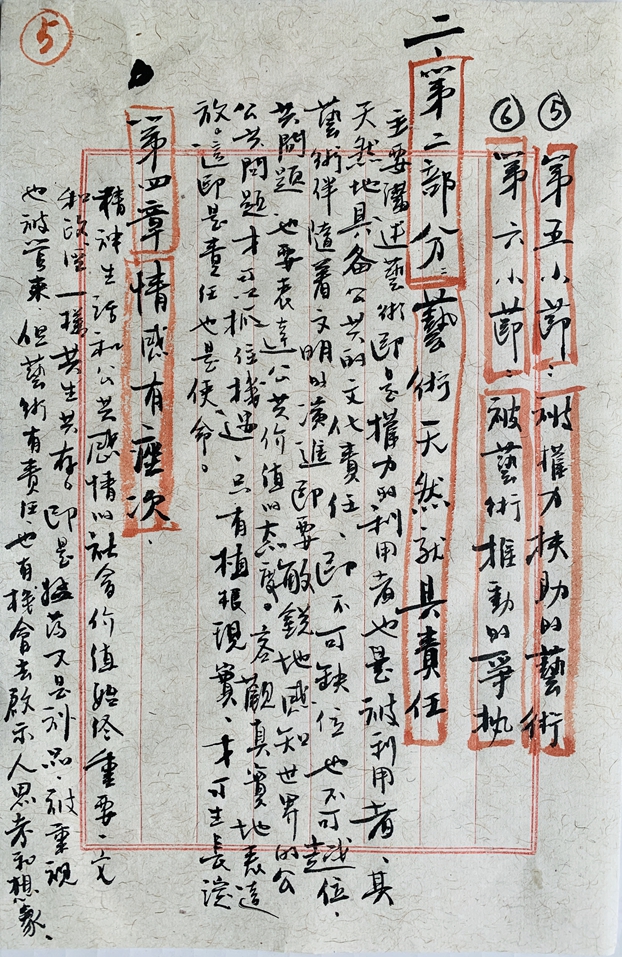 5
⑤ 第五小節：被權力扶助的藝術
⑥ 第六小節：被藝術推動的爭执
二、第二部分：藝術天然就具責任
主要講述藝術即是權力的利用者也是被利用者、具
天然地具备公共的文化責任、即不可缺位也不可越位、
藝術伴隨着文明的演進即要敏銳地感知世界的公
共問題 也要表達公共价值的态度。客觀真實地表達
公共問題才可以抓住機遇、只有植根現實、才可生長綻
放。這即是責任也是使命。
第四章 情感有座次、
精神生活和公共感情的社會价值始终重要、文
和政治一樣共生共存。即是 又是 品、被重視
也被管束、但藝術有責任也有機會去啟示人思考和想象、